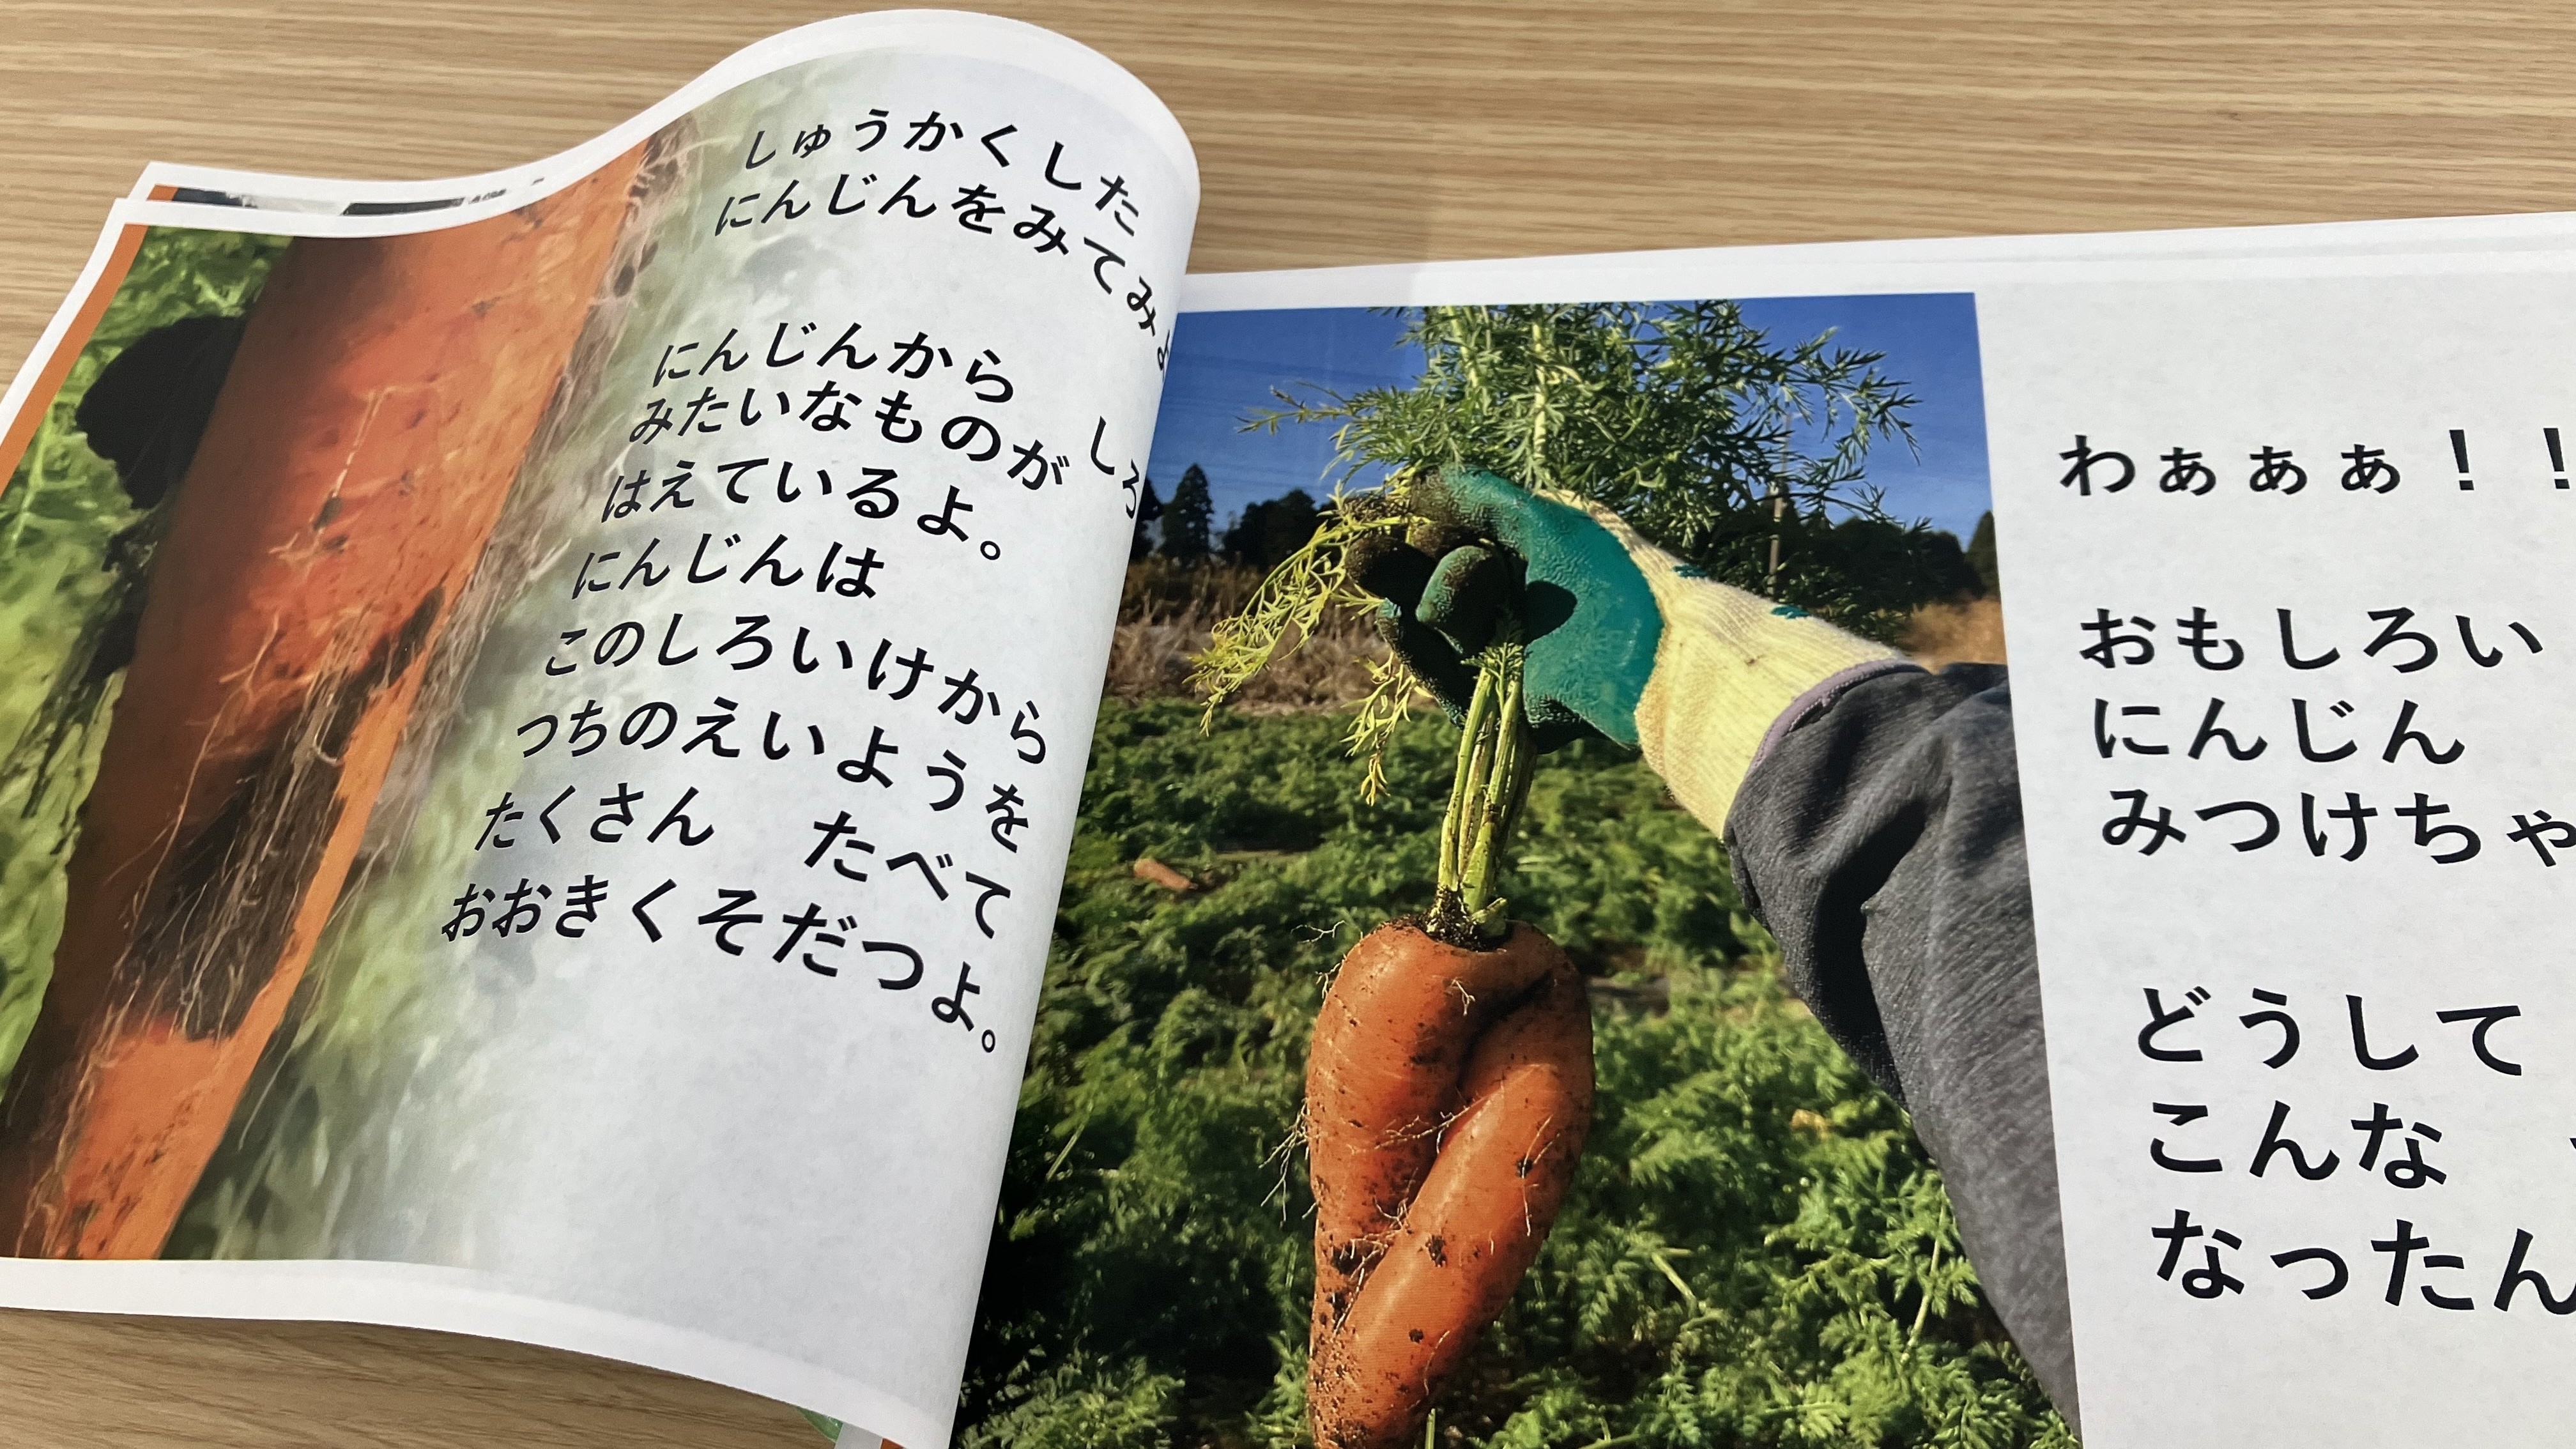 しゅうかくした
にんじんをみてみよ
にんじんから しろ
みたいなものが
はえているよ。
にんじんは
このしろいけから
つちのえいようを
たくさん たべて
おおきくそだつよ。
わぁぁぁ！！
おもしろい
にんじん
みつけちゃ
どうして
こんな
なったん